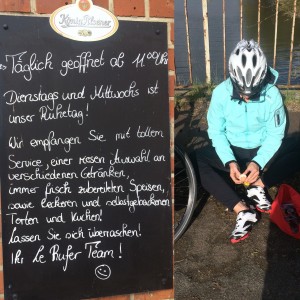 König Pilsener
Täglich geöffnet ab 11 00 Uhr
Dienstags und Mittwochs ist
unser Ruhetag!
Wir empfangen Sie mit tollem
Service, einer riesen Auswahl an
verschiedenen Getränken,
immer frisch zubereiteten Speisen,
sowie leckeren und selbstgebackenen
Torten und Kuchen!
Lassen Sie sich überraschen!
Ihr Le Rufer Team!